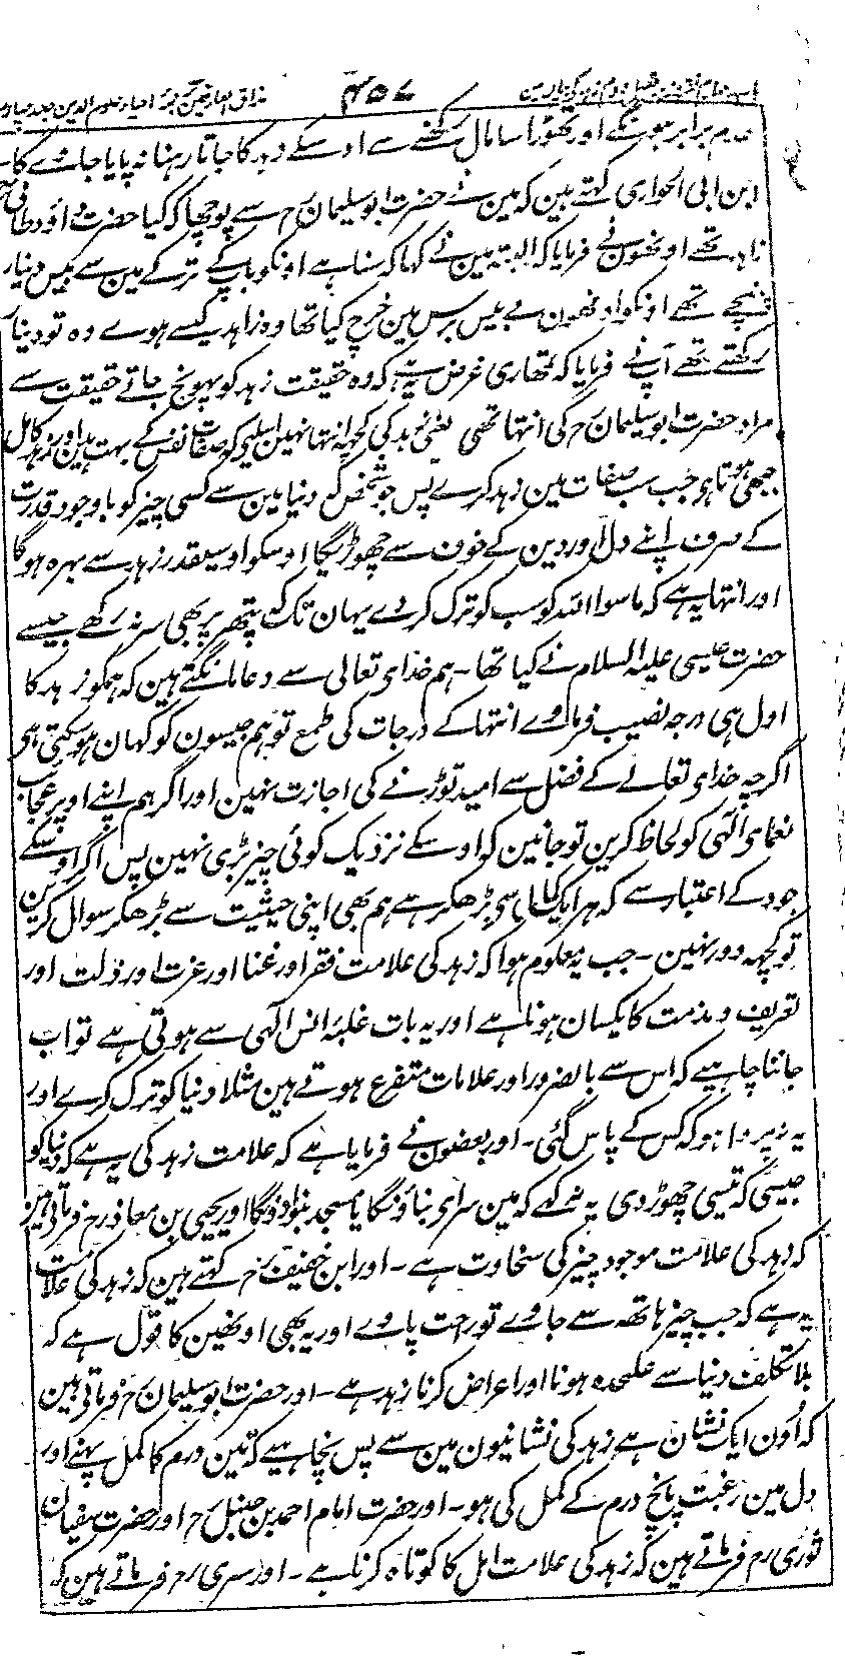 مذاق العارفین ترجمہ احیاء علوم الدین جلد چہارم
۴۵۷
عدم برابر ہونگے اور تھوڑا سا مال رکھنے سے اوسکے زہد کا جاتا رہنا نہ پایا جاوے گا
ابن ابی الحواری کہتے ہین کہ مین نے حضرت ابو سلیمان رح سے پوچھا کہ کیا حضرت داؤد طائی رح
زاہد تھے اونھون نے فرمایا کہ البتہ مین نے کہا کہ سنا ہے اونکو باپ کے ترکے مین سے بیس دینار
پہنچے تھے اونکو اونھون نے بیس برس مین خرچ کیا تھا وہ زاہد کیسے ہوے وہ تو دینار
رکھتے تھے آپ نے فرمایا کہ تمھاری غرض یہ ہے کہ وہ حقیقت زہد کو پہونچ جاتے حقیقت سے
مراد حضرت ابو سلیمان رح کی انتہا تھی یعنی زہد کی کچھ انتہا نہین اسلیے کہ صفات نفس کے بہت ہین اور زہد کامل
جبھی ہوتا ہو جب سب صفات مین زہد کرے پس جو شخص کہ دنیا مین سے کسی چیز کو باوجود قدرت
کے صرف اپنے دل اور دین کے خوف سے چھوڑیگا اوسکو اوسیقدر زہد سے بہرہ ہوگا
اور انتہا یہ ہے کہ ماسوا اللہ کو سب کو ترک کر دے یہان تک کہ پتھر پر بھی سر نہ رکھے جیسے
حضرت عیسی علیہ السلام نے کیا تھا ۔ ہم خدای تعالی سے دعا مانگتے ہین کہ ہمکو زہد کا
اول ہی درجہ نصیب فرماوے انتہا کے درجات کی طمع تو ہم جیسون کو کہان ہو سکتی ہو
اگرچہ خدای تعالے کے فضل سے امید توڑنے کی اجازت نہین اور اگر ہم اپنے اوپر عجائب
نعمای الٰہی کو لحاظ کرین تو جانین کہ اوسکے نزدیک کوئی چیز بڑی نہین پس اگر اوسکے
جود کے اعتبار سے کہ ہر ایک کمال سے بڑھکر ہے ہم بھی اپنی حیثیت سے بڑھکر سوال کرین
تو کچھ دور نہین ۔ جب یہ معلوم ہوا کہ زہد کی علامت فقر اور غنا اور عزت اور ذلت اور
تعریف و مذمت کا یکسان ہونا ہے اور یہ بات غلبۂ انس الٰہی سے ہوتی ہے تو اب
جاننا چاہیے کہ اس سے بالضرور اور علامات متفرع ہوتے ہین مثلا دنیا کو ترک کرے اور
یہ نہ پروا ہو کہ کس کے پاس گئی ۔ اور بعضون نے فرمایا ہے کہ علامت زہد کی یہ ہے کہ دنیا کو
جیسی کہ تیسی چھوڑ دی یہ نہ کہے کہ مین سرای بناؤنگا یا مسجد بنوادونگا اور یحیی بن معاذ رح فرماتی ہین
کہ زہد کی علامت موجود چیز کی سخاوت ہے ۔ اور ابن خفیف رح کہتے ہین کہ زہد کی علامت
یہ ہے کہ جب چیز ہاتھ سے جاوے تو راحت پاوے اور یہ بھی اونھین کا قول ہے کہ
بلا تکلف دنیا سے علحدہ ہونا اور اعراض کرنا زہد ہے ۔ اور حضرت ابو سلیمان رح فرماتی ہین
کہ اُون ایک نشان ہے زہد کی نشانیون مین سے پس نچاہیے کہ تین درم کا کمل پہنے اور
دل مین رغبت پانچ درم کے کمل کی ہو ۔ اور حضرت امام احمد بن حنبل رح اور حضرت سفیان
ثوری رح فرماتے ہین کہ زہد کی علامت امل کا کوتاہ کرنا ہے ۔ اور سری رح فرماتے ہین کہ